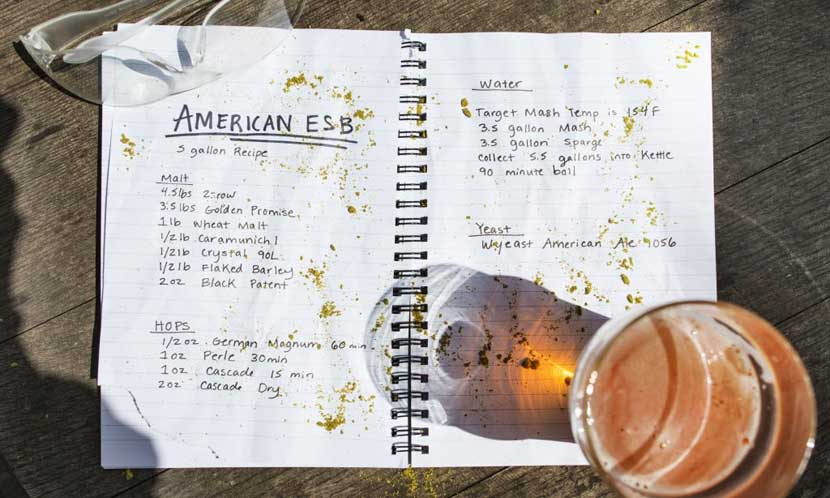 AMERICAN ESB
5 gallon Recipe
Malt
4.5lbs 2-row
3.5lbs Golden Promise
1lb Wheat Malt
1/2lb Caramunich 1
1/2lb Crystal 90L
1/2lb Flaked Barley
2oz Black Patent
HOPS
1/2oz. German Magnum 60 min
1oz Perle 30min
1oz Cascade 15 min
2oz Cascade Dry
Water
Target Mash Temp is 154 F
3.5 gallon Mash
3.5 gallon Sparge
collect 5.5 gallons into Kettle
90 minute boil
Yeast
Wyeast American Ale 1056